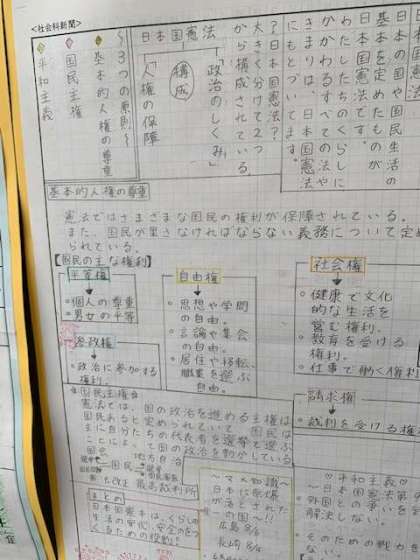 <社会科新聞>
日本国憲法
基本を定めたもの
日本国民の生活の
わたしたちのくらしに
かかわるすべての法や
きまりは、日本国憲法
にもとづいています。
日本国憲法
大きく分けて2つ
から構成されている。
構成
「政治のしくみ」
「人権の保障」
~3つの原則~
基本的人権の尊重
国民主権
平和主義
基本的人権の尊重
憲法ではさまざまな国民の権利が保障されている。
また、国民が果さなければならない義務について定め
られている。
【国民の主な権利】
平等権
・個人の尊重
・男女の平等
自由権
・思想や学問
の自由。
・言論や集会
の自由。
・居住や移転、
職業を選ぶ
自由。
社会権
・健康で文化
的な生活を
営む権利。
・教育を受ける
権利。
・仕事で働く権利
参政権
・政治に参加する
権利。
請求権
・裁判を受ける権
☆国民主権☆
憲法では、国の政治を進める主権は
国民にあると定められていて、国民は
主に自分たちの代表者を選挙で選ぶ
ことによって国の政治を動かしている
国会
地方自治
国民
最高裁判所
まとめ
日本国憲法は、くらしや
生活の安心、安全をつ
くるための役割!!
~マメ知識~
日本に原爆
が落とされた
の日!!
広島8/6
長崎8/9
♡平和主義♡
~日本国憲法第9
外国との争いを
解決しない
そのための